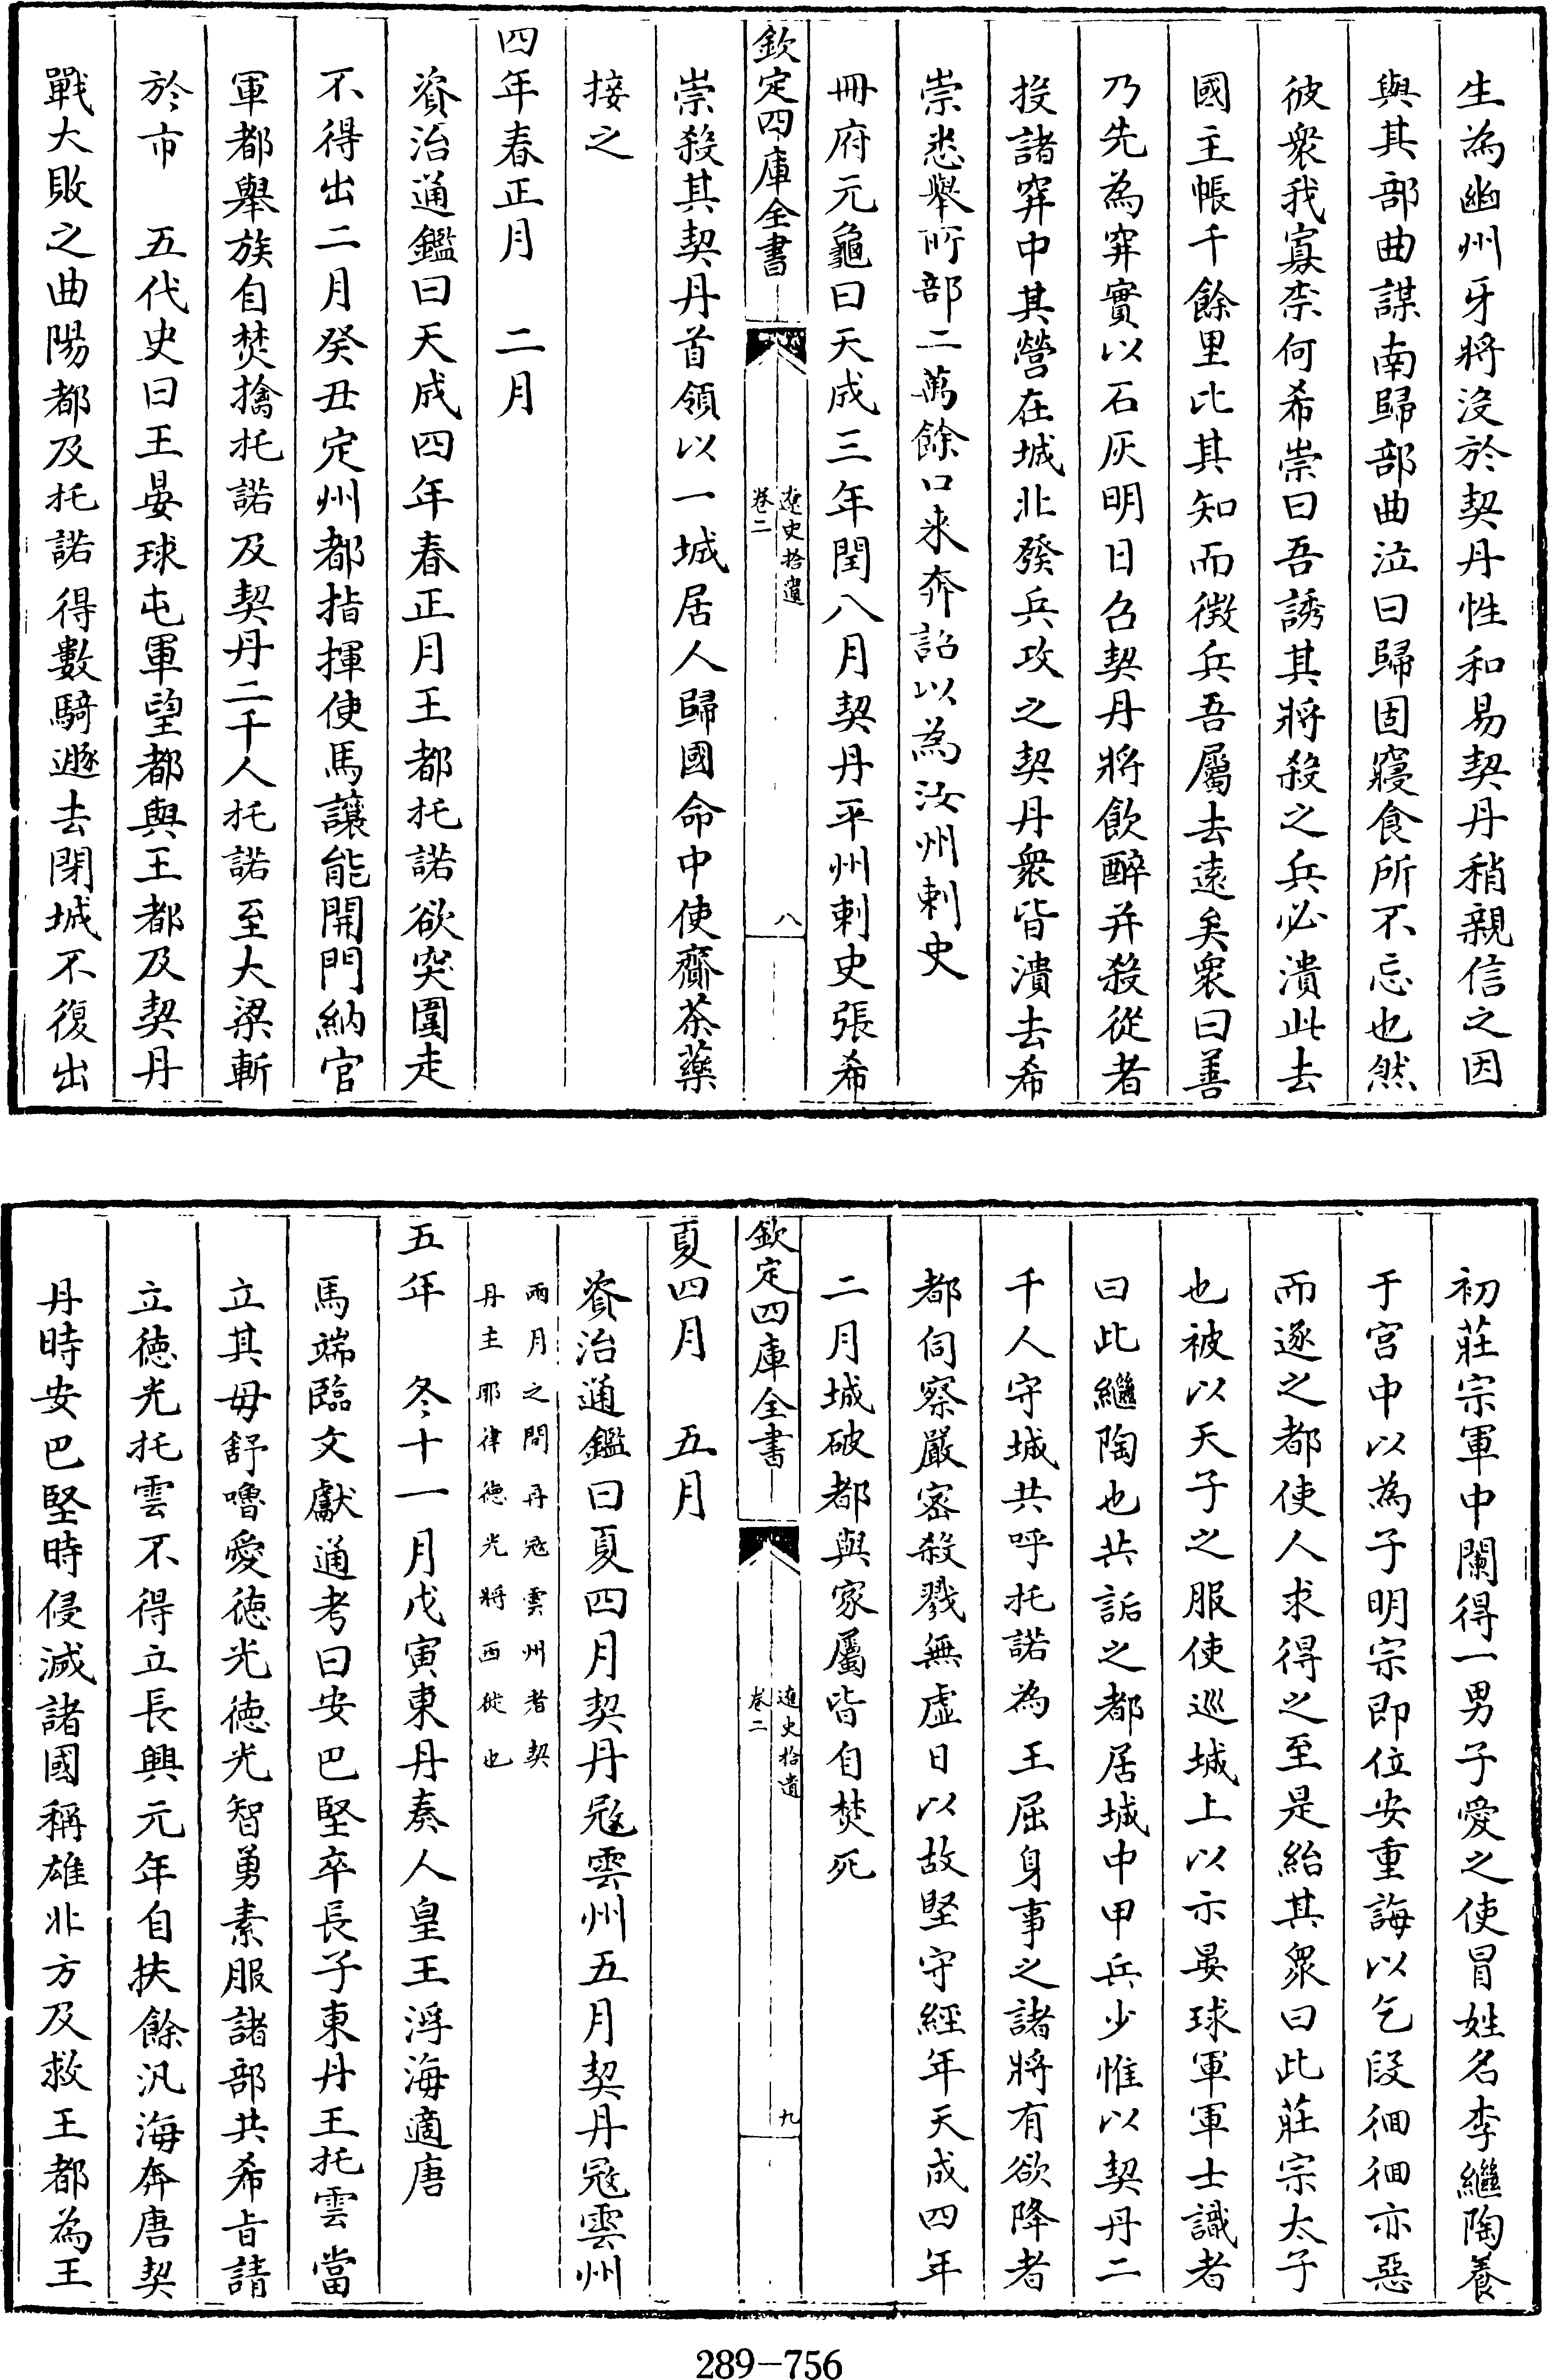 生為幽州牙將没於契丹性和易契丹稍親信之因
與其部曲謀南歸部曲泣曰歸固寢食所不忘也然
彼衆我寡柰何希崇曰吾誘其將殺之兵必潰此去
國主帳千餘里比其知而徴兵吾屬去遠矣衆曰善
乃先為穽實以石灰明日召契丹將飲醉并殺從者
投諸穽中其營在城北發兵攻之契丹衆皆潰去希
崇悉舉所部二萬餘口來奔詔以為汝州刺史
冊府元龜曰天成三年閏八月契丹平州刺史張希
欽定四庫全書
遼史拾遺
卷二
八
崇殺其契丹首領以一城居人歸國命中使齎茶藥
接之
四年春正月　二月
資治通鑑曰天成四年春正月王都托諾欲突圍走
不得出二月癸丑定州都指揮使馬讓能開門納官
軍都舉族自焚擒托諾及契丹二千人托諾至大梁斬
於市　五代史曰王晏球屯軍望都與王都及契丹
戰大敗之曲陽都及托諾得數騎遯去閉城不復出
初莊宗軍中闌得一男子愛之使冒姓名李繼陶養
于宮中以為子明宗即位安重誨以乞段徊徊亦惡
而逐之都使人求得之至是紿其衆曰此莊宗太子
也被以天子之服使巡城上以示晏球軍軍士識者
曰此繼陶也共詬之都居城中甲兵少惟以契丹二
千人守城共呼托諾為王屈身事之諸將有欲降者
都伺察嚴密殺戮無虚日以故堅守經年天成四年
二月城破都與家屬皆自焚死
欽定四庫全書
遼史拾遺
卷二
九
夏四月　五月
資治通鑑曰夏四月契丹㓂雲州五月契丹㓂雲州
兩月之間再㓂雲州者契
丹主耶律徳光將西徙也
五年　冬十一月戊寅東丹奏人皇王浮海適唐
馬端臨文獻通考曰安巴堅卒長子東丹王托雲當
立其母舒嚕愛徳光徳光智勇素服諸部共希旨請
立徳光托雲不得立長興元年自扶餘汎海奔唐契
丹時安巴堅時侵滅諸國稱雄北方及救王都為王
289-756